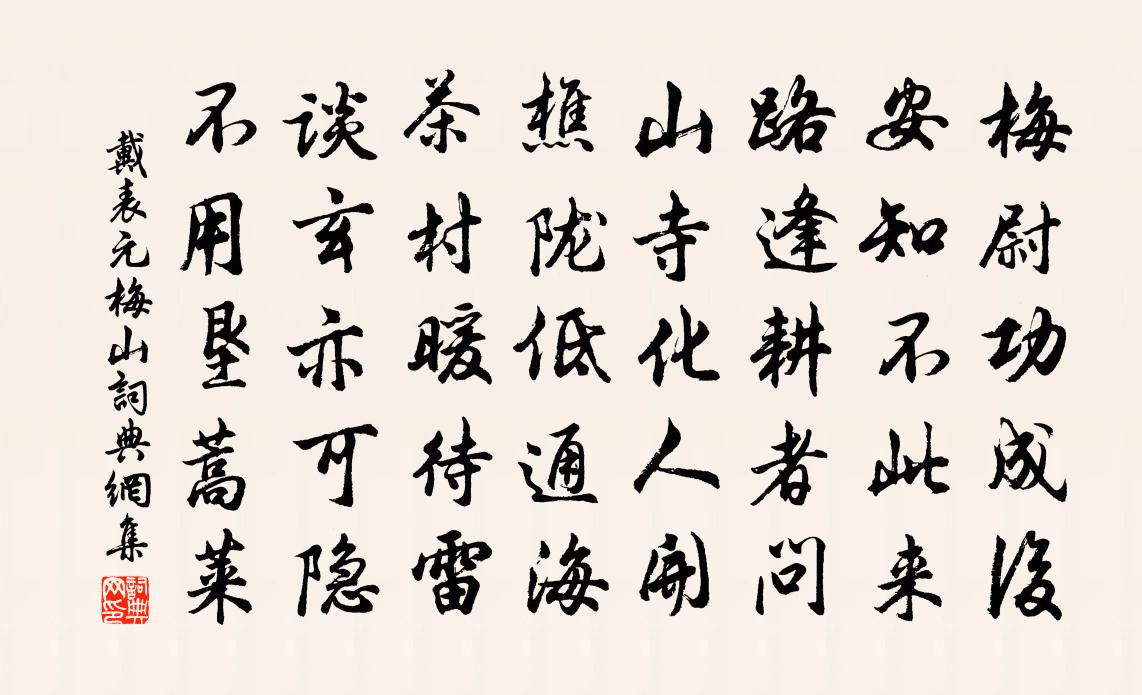 梅尉功成後
安知不此来
路逢耕者问
山寺化人開
樵陇低通海
茶村暖待雷
谈玄亦可隐
不用垦蒿莱
戴表元梅山詞典網集
詞典网印